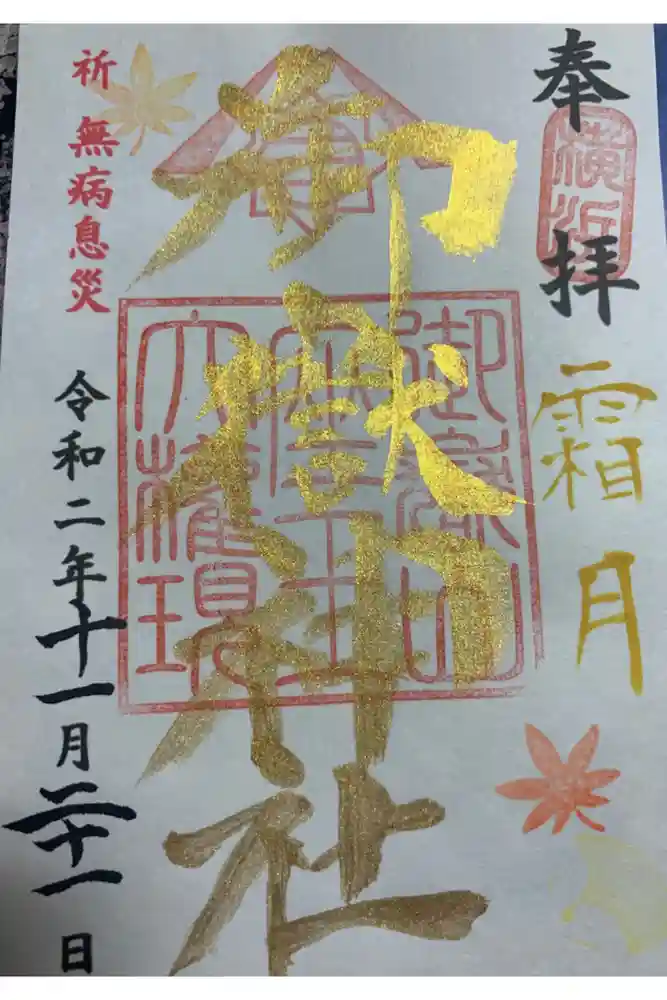 奉拝
霜月
御嶽神社
御嶽山
大権現
祈 無病息災
令和二年十一月二十一日